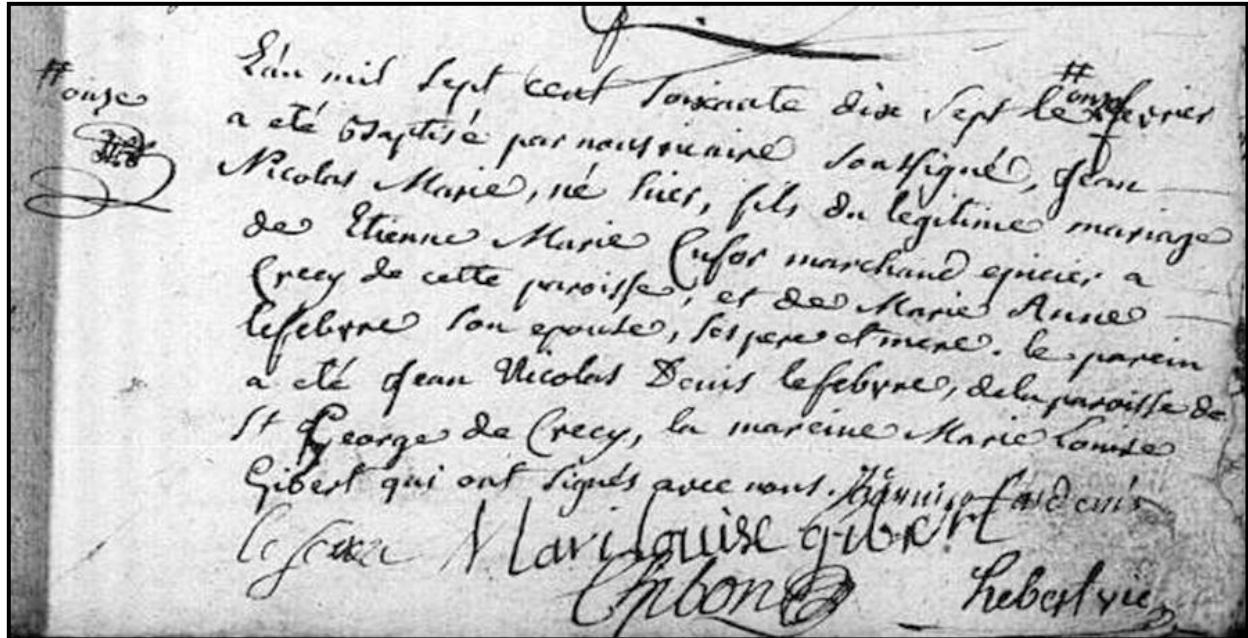 # onze
L'an mil sept cent soixante dix sept le # onze fevrier
a eté Baptisé par nous vicaire soussigné, Jean
Nicolas Marie, né hier, fils du legitime mariage
de Etienne Marie marchand epicier a
Crecy de cette paroisse, et de Marie Anne
lefebvre son epouse, ses pere et mere. le parein
a eté Jean Nicolas Denis lefebvre, de la paroisse de
St George de Crecy, la mareine Marie Louise
Gibert qui ont signés avec nous.
Mari louise gibert
hebert vic